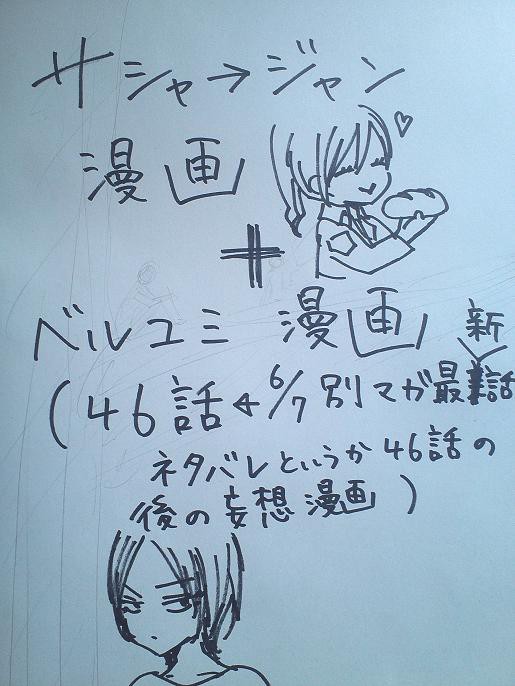 サシャ→ジャン
漫画
+
ベルユミ 漫画 新
(46話←6/7別マガ最話
ネタバレというか46話の
後の妄想漫画)